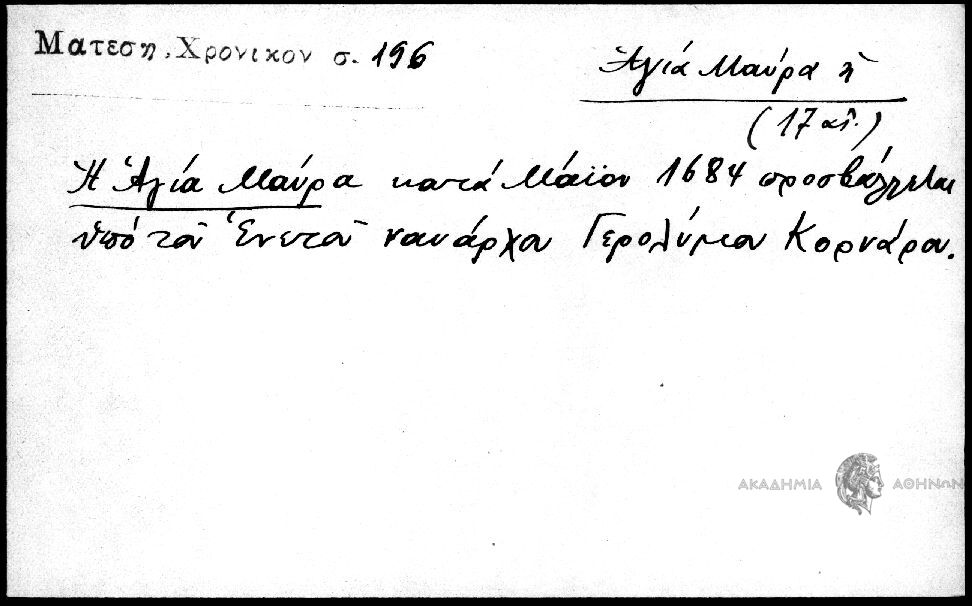 Ματεση, Χρονικον σ. 196
Ἁγιά Μαύρα ἡ
(17 αἰ.)
Ἡ Ἁγία Μαύρα κατά Μάϊον 1684 προσβάλλεται
ὑπό τοῦ Ἑνετοῦ ναυάρχου Γερολύμου Κορνάρου.
ΑΚΑΔΗΜΙΑ ΑΘΗΝΩΝ